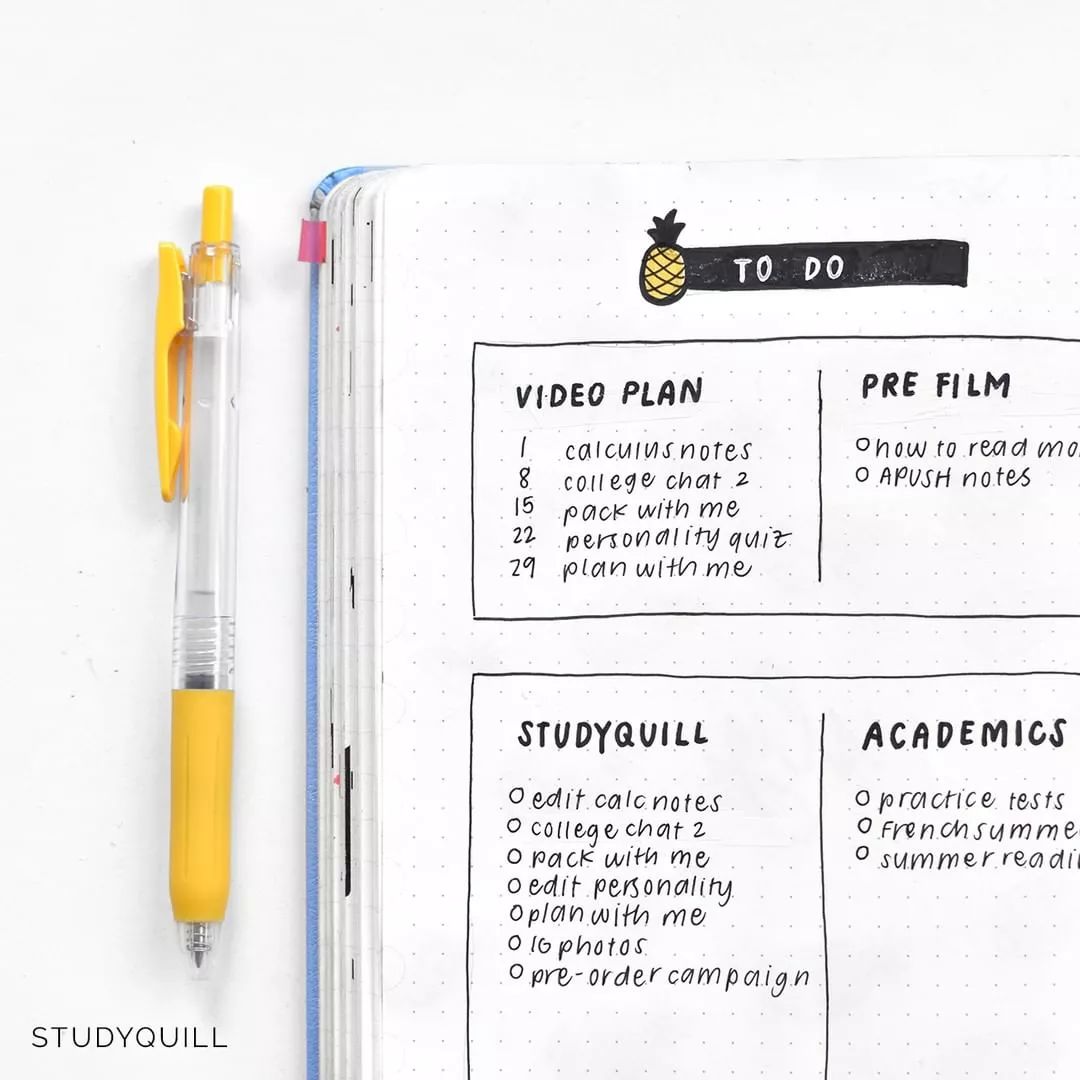 TO DO
VIDEO PLAN
1 calculus notes
8 college chat 2
15 pack with me
22 personality quiz
29 plan with me
PRE FILM
how to read
APUSH notes
STUDYQUILL
edit calc notes
college chat 2
pack with me
edit personality
plan with me
IG photos
pre-order campaign
ACADEMICS
practice tests
French
summer
STUDYQUILL